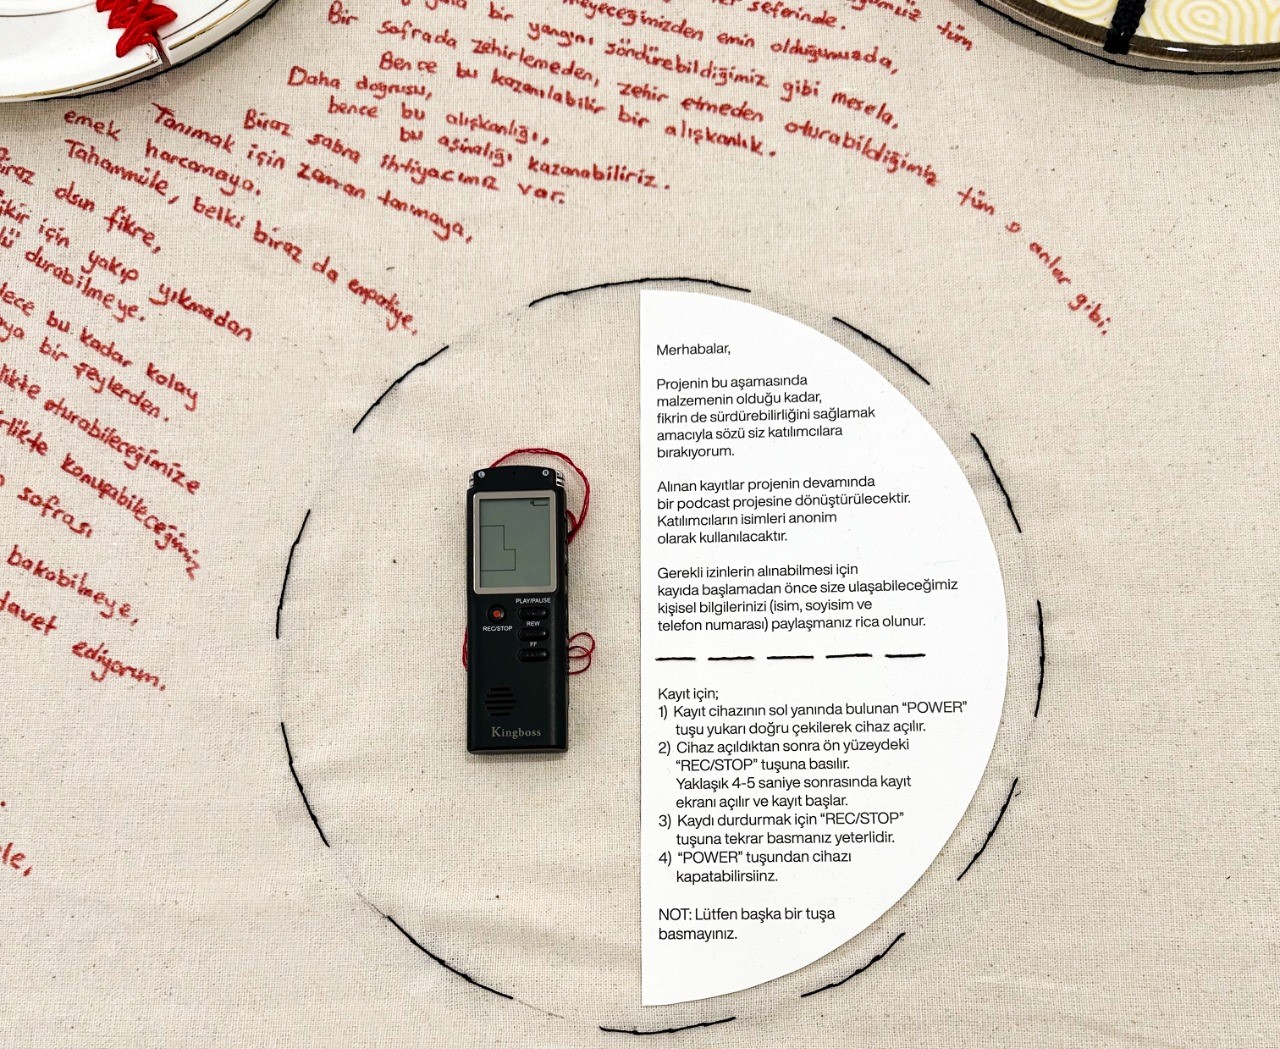 her seferinde.
tüm
Bir
bir yangını söndürebildiğimiz gibi mesela,
emin olduğumuzda,
sofrada zehirlemeden, zehir etmeden oturabildiğimiz tüm o anlar gibi.
Bence bu kazanılabilir bir alışkanlık.
Daha doğrusu,
bence bu alışkanlığı,
bu aşinalığı kazanabiliriz.
Biraz sabra ihtiyacımız var.
Tanımak için zaman tanımaya,
emek harcamaya.
Tahammüle, belki biraz da empatiye,
olsun fikre,
için yakıp yıkmadan
durabilmeye.
bu kadar kolay
bir şeylerden.
oturabileceğimize
konuşabileceğimiz
sofrası
bakabilmeye,
davet ediyorum.
Merhabalar,
Projenin bu aşamasında
malzemenin olduğu kadar,
fikrin de sürdürebilirliğini sağlamak
amacıyla sözü siz katılımcılara
bırakıyorum.
Alınan kayıtlar projenin devamında
bir podcast projesine dönüştürülecektir.
Katılımcıların isimleri anonim
olarak kullanılacaktır.
Gerekli izinlerin alınabilmesi için
kayıda başlamadan önce size ulaşabileceğimiz
kişisel bilgilerinizi (isim, soyisim ve
telefon numarası) paylaşmanız rica olunur.
Kayıt için;
1) Kayıt cihazının sol yanında bulunan “POWER”
tuşu yukarı doğru çekilerek cihaz açılır.
2) Cihaz açıldıktan sonra ön yüzeydeki
“REC/STOP” tuşuna basılır.
Yaklaşık 4-5 saniye sonrasında kayıt
ekranı açılır ve kayıt başlar.
3) Kaydı durdurmak için “REC/STOP”
tuşuna tekrar basmanız yeterlidir.
4) “POWER” tuşundan cihazı
kapatabilirsiinz.
NOT: Lütfen başka bir tuşa
basmayınız.
PLAY/PAUSE
REC/STOP
REW
FF
Kingboss